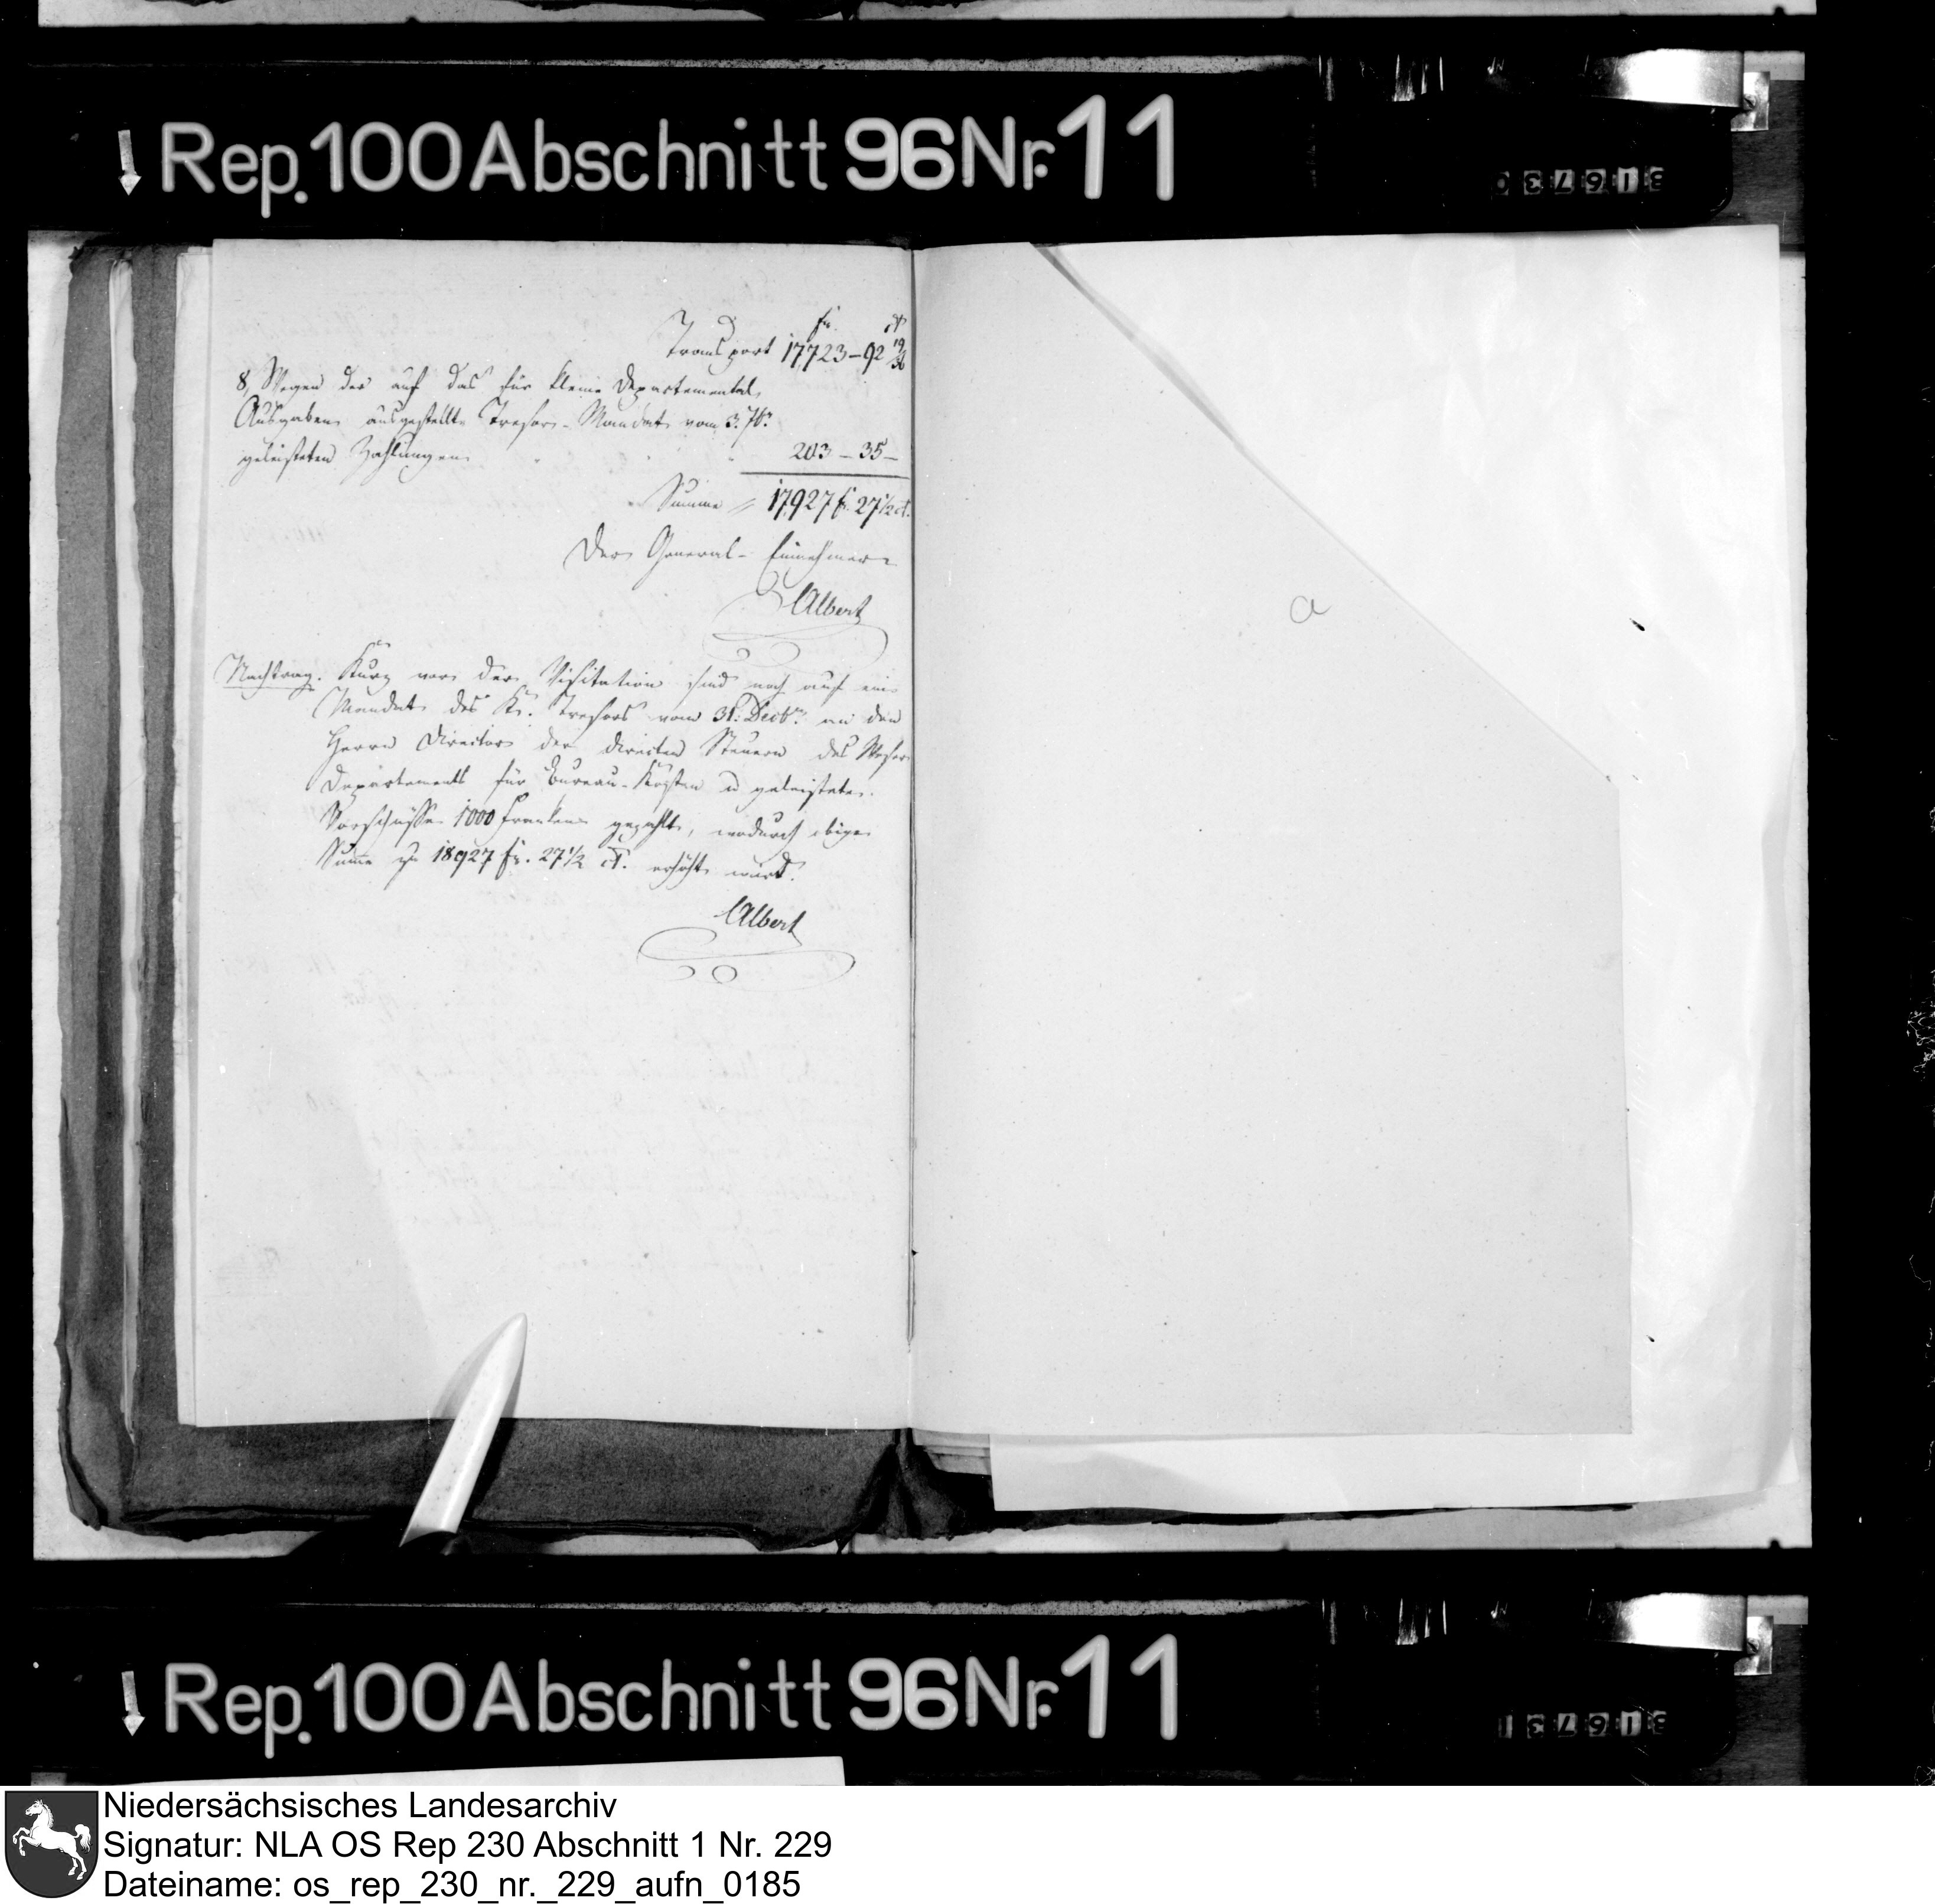 Rep. 100 Abschnitt 96 Nr. 11
fr. ct
Transport 17,723 – 92
8, Wegen der auf das für kleine Departemental
Ausgaben ausgestellte Tresor-Mandat vom 3. 7br
geleisteten Zahlungen 203 – 35 –
Summe 17,927 fr. 27 1/2 ct.
Der General-Einnehmer
Albert
Nachtrag. Kurz vor der Visitation sind noch auf ein
Mandat des Tresors vom 31. Decbr. an den
Herrn Director der directen Steuern des Weser
Departements für Bureau-Kosten u geleistete
Vorschüsse 1000 Franken gezahlt, wodurch obige
Summe zu 18927 fr. 27 1/2 ct. erhöht wird.
Albert
a
Rep. 100 Abschnitt 96 Nr. 11
Niedersächsisches Landesarchiv
Signatur: NLA OS Rep 230 Abschnitt 1 Nr. 229
Dateiname: os_rep_230_nr._229_aufn_0185